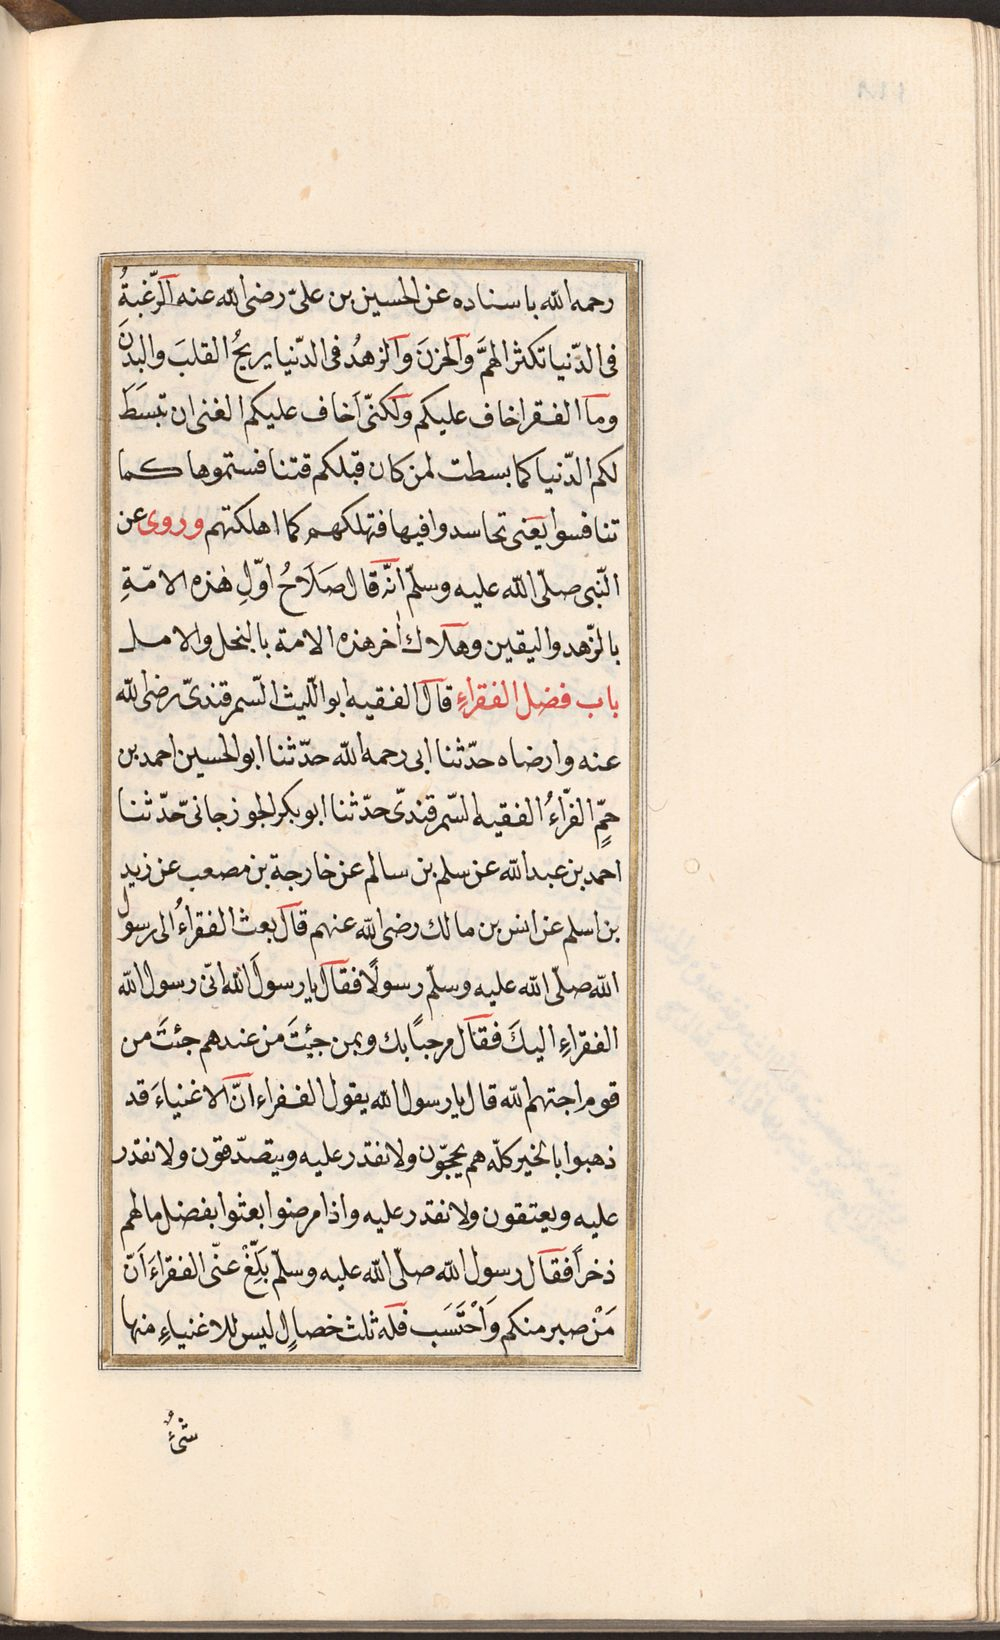 رحمه الله باسناده عن الحسين بن علىّ رضى الله عنه الرّغبةُ
فى الدّنيا تكثر الهمَّ والحزنَ والزهدُ فى الدّنيا يريحُ القلبَ والبدنَ
وما الفقر اخاف عليكم ولكنّى اَخاف عليكم الغنى ان تبسَطَ
لكم الدّنيا كما بسطت لمن كان قبلكم فتنافستموها كما
تنافسوا يعنى تحاسدوا فيها فتهلكهم كما اهلكتهم وروى عن
النّبى صلّى الله عليه وسلّم انّه قال صَلَاحُ اوّلِ هٰذه الامّةِ
بالزّهد واليقين وهلاك اٰخر هذه الامة بالبخل والامل
باب فضل الفقراءِ قال الفقيه ابو اللّيث السّمرقندىّ رضى الله
عنه وارضاه حدّثنا ابى رحمه الله حدّثنا ابو الحسين احمد بن
حمٍّ الفرّاءُ الفقيه السّمرقندىّ حدّثنا ابو بكر الجوزجانىّ حدّثنا
احمد بن عبد الله عن سلم بن سالم عن خارجة بن مصعب عن زيد
بن اسلم عن انس بن مالك رضى الله عنهم قال بعث الفقراءُ الى رسول
الله صلّى الله عليه وسلّم رسولًا فقال يا رسولَ الله انّى رسول الله
الفقراءِ اليكَ فقال مرحبًا بك وبمن جئتَ من عندهم جئتَ من
قوم احبّهم لله قال يا رسول الله يقول الفقراء انّ الاغنياءَ قد
ذهبوا بالخير كلّه هم يحجّون ولا نقدر عليه ويتصدّقون ولا نقدر
عليه ويعتقون ولا نقدر عليه واذا مرضوا بعثوا بفضل مالهم
ذخرًا فقال رسول الله صلّى الله عليه وسلّم بَلِّغْ عنّى الفقراءَ اَنّ
مَنْ صبر منكم وَاحْتَسَب فله ثلث خصالٍ ليس للاغنياءِ منها
شئٌ